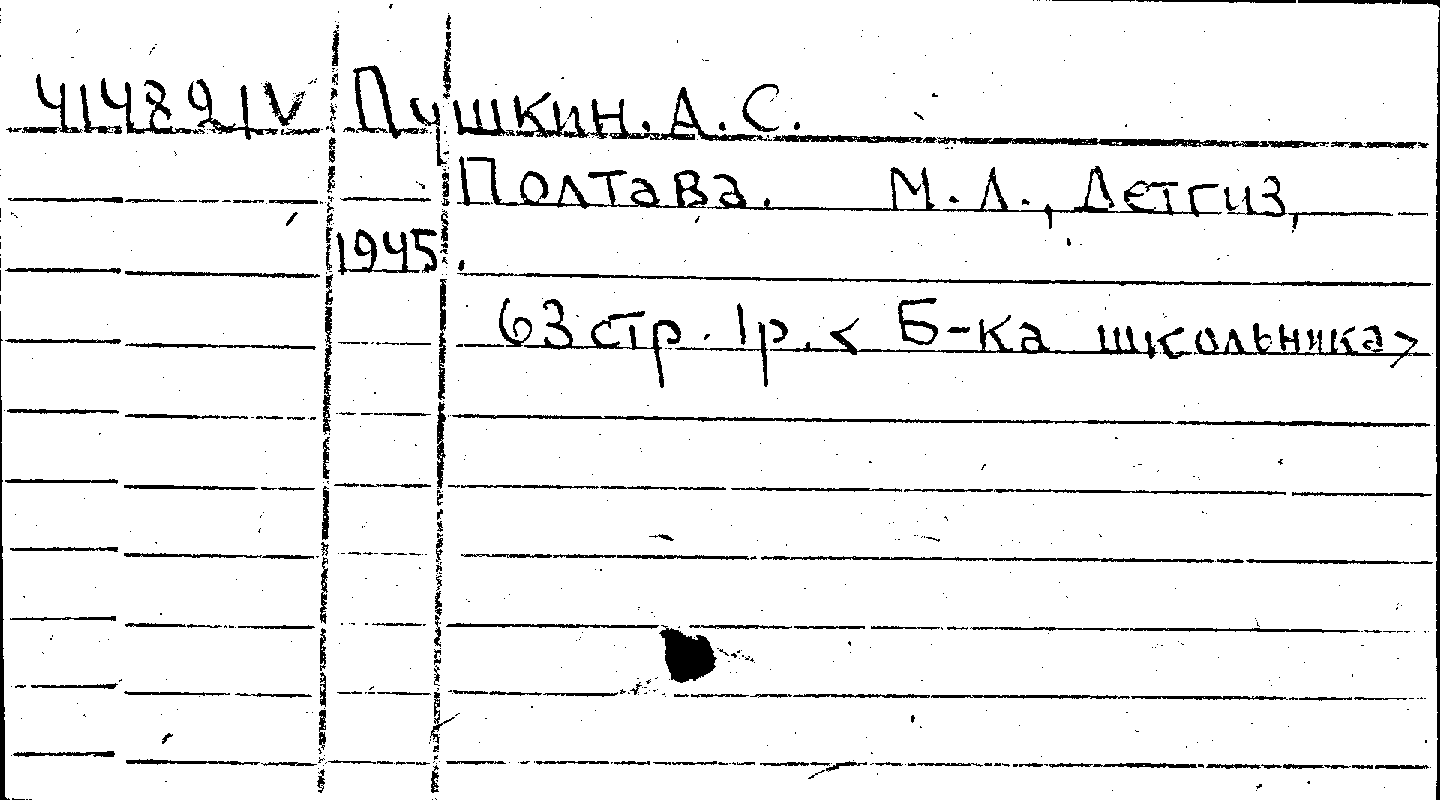 414821V Пушкин. А. С.
Полтава. М. Л., Детгиз,
1945.
63 стр. 1р. < Б-ка школьника>